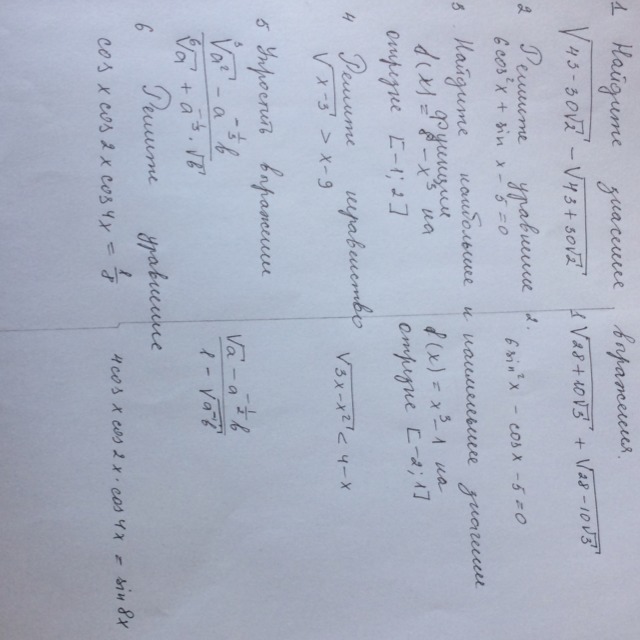 1 Найдите значение выражения.
√43-30√2 - √43+30√2
1 √28+10√3 + √28-10√3
2 Решите уравнение
6cos²x + sin x - 5 = 0
2. 6 sin²x - cos x - 5 = 0
3 Найдите наибольшее и наименьшее значение
функции
f(x) = 8 - x³ на
отрезке [-1; 2]
f(x) = x³ - 1 на
отрезке [-2; 1]
4 Решите неравенство
√x-3 > x-9
√3x-x² < 4-x
5 Упростить выражение
√a - a^(-1/2) b
1 - √
6 Решите уравнение
cos x cos 2x cos 4x = 1/8
4cos x cos 2x · cos 4x = sin 8x